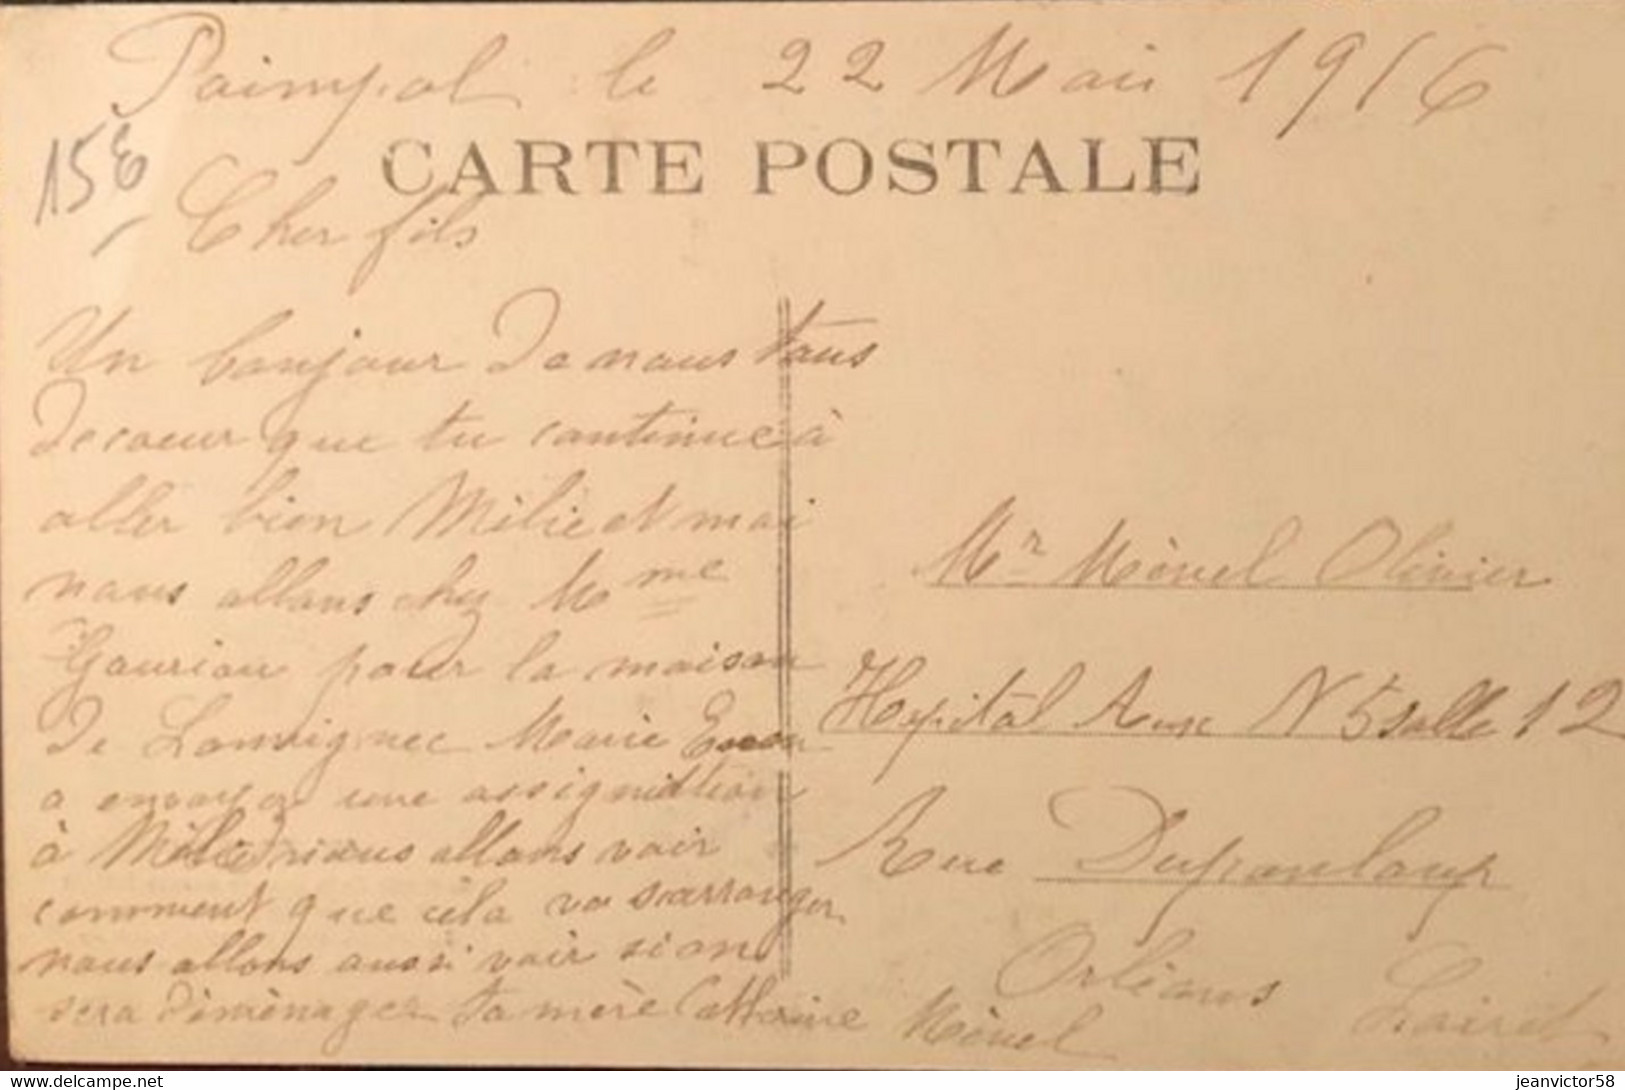 Paimpol le 22 Mai 1916
15€
CARTE POSTALE
Cher fils
Un bonjour de nous tous
de coeur que tu continue à
aller bien Mélie et moi
nous allons chez Mme
Gouriou pour la maison
de Lanvignec Marie
a envoyer une assignation
à Mélie nous allons voir
comment que cela va s'arranger
nous allons aussi voir si on
sera déménager ta mère Catherine Ménel
Mr Ménel Olivier
Hopital Aux N 5 salle 12
Rue Dupanloup
Orléans Loiret
delcampe.net
jeanvictor58